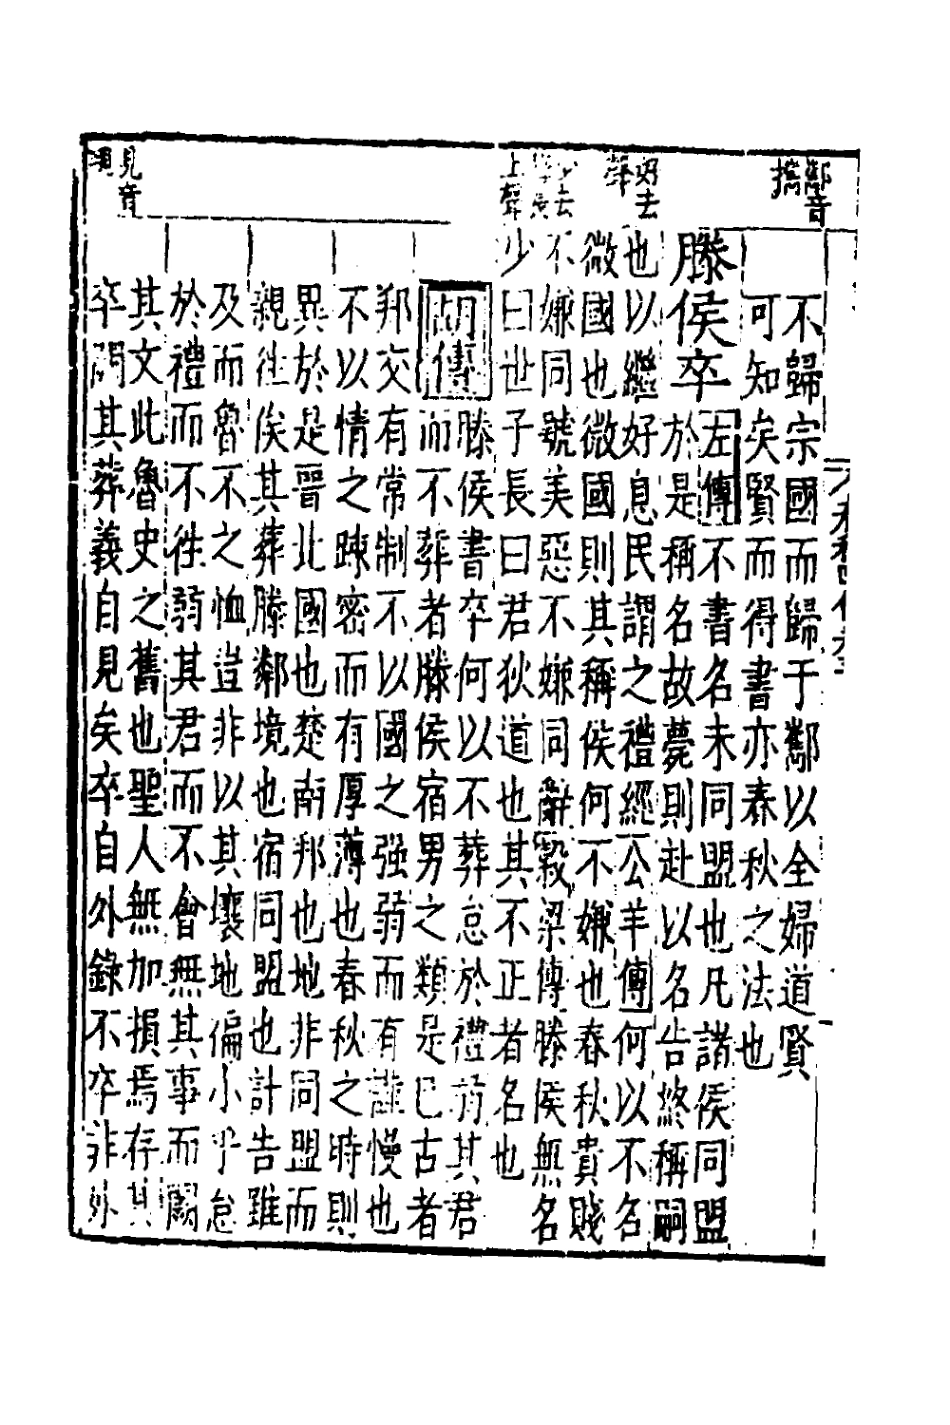 酅音
攜
好去
聲
少去
上聲
見音
現
不歸宗國而歸于酅以全婦道賢
可知矣賢而得書亦春秋之法也
滕侯卒左傳不書名未同盟也凡諸侯同盟
於是稱名故薨則赴以名告終稱嗣
也以繼好息民謂之禮經公羊傳何以不名
微國也微國則其稱侯何不嫌也春秋貴賤
不嫌同號美惡不嫌同辭穀梁傳滕侯無名
少曰世子長曰君狄道也其不正者名也
胡傳滕侯書卒何以不葬怠於禮弱其君
而不葬者滕侯宿男之類是已古者
邦交有常制不以國之强弱而有謹慢也
不以情之踈密而有厚薄也春秋之時則
異於是晉北國也楚南邦也地非同盟而
親徃侯其葬滕鄰境也宿同盟也計告雖
及而魯不之恤豈非以其壤地偏小乎怠
於禮而不徃弱其君而不會無其事而闕
其文此魯史之舊也聖人無加損焉存其
卒闕其葬義自見矣卒自外錄不卒非外